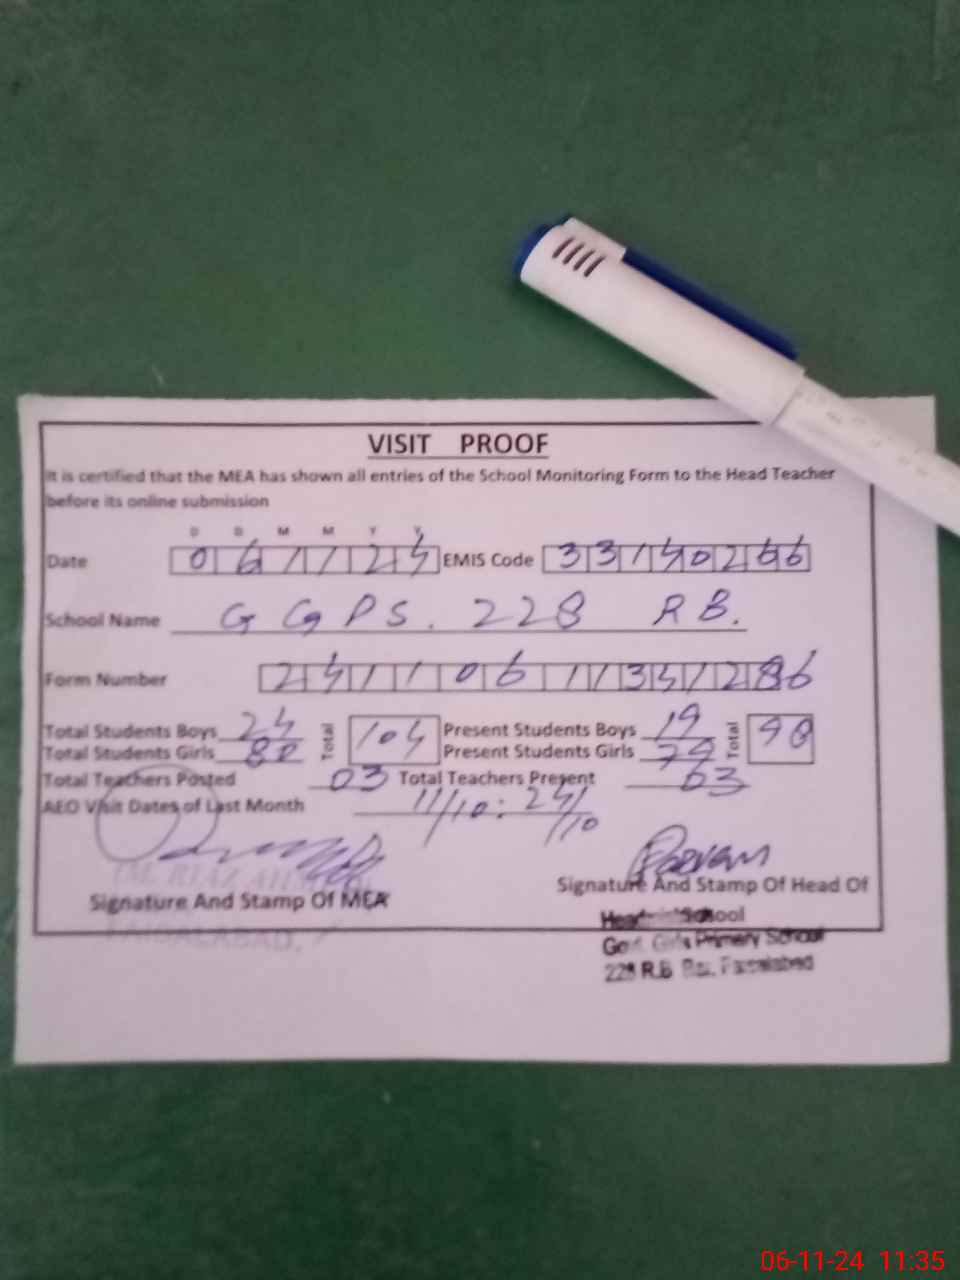 VISIT PROOF
It is certified that the MEA has shown all entries of the School Monitoring Form to the Head Teacher
before its online submission
D D M M Y Y
Date 061124 EMIS Code 33140266
School Name GGPS. 228 RB.
Form Number 24110611341286
Total Students Boys 24 Total 104 Present Students Boys 19 Total 98
Total Students Girls 80 Present Students Girls 79
Total Teachers Posted 03 Total Teachers Present 03
AEO Visit Dates of Last Month 11/10: 24/10
Signature And Stamp Of MEA
FAISALABAD.
Signature And Stamp Of Head Of
School
Govt. Girls Primary School
228 R.B Faisalabad
06-11-24 11:35